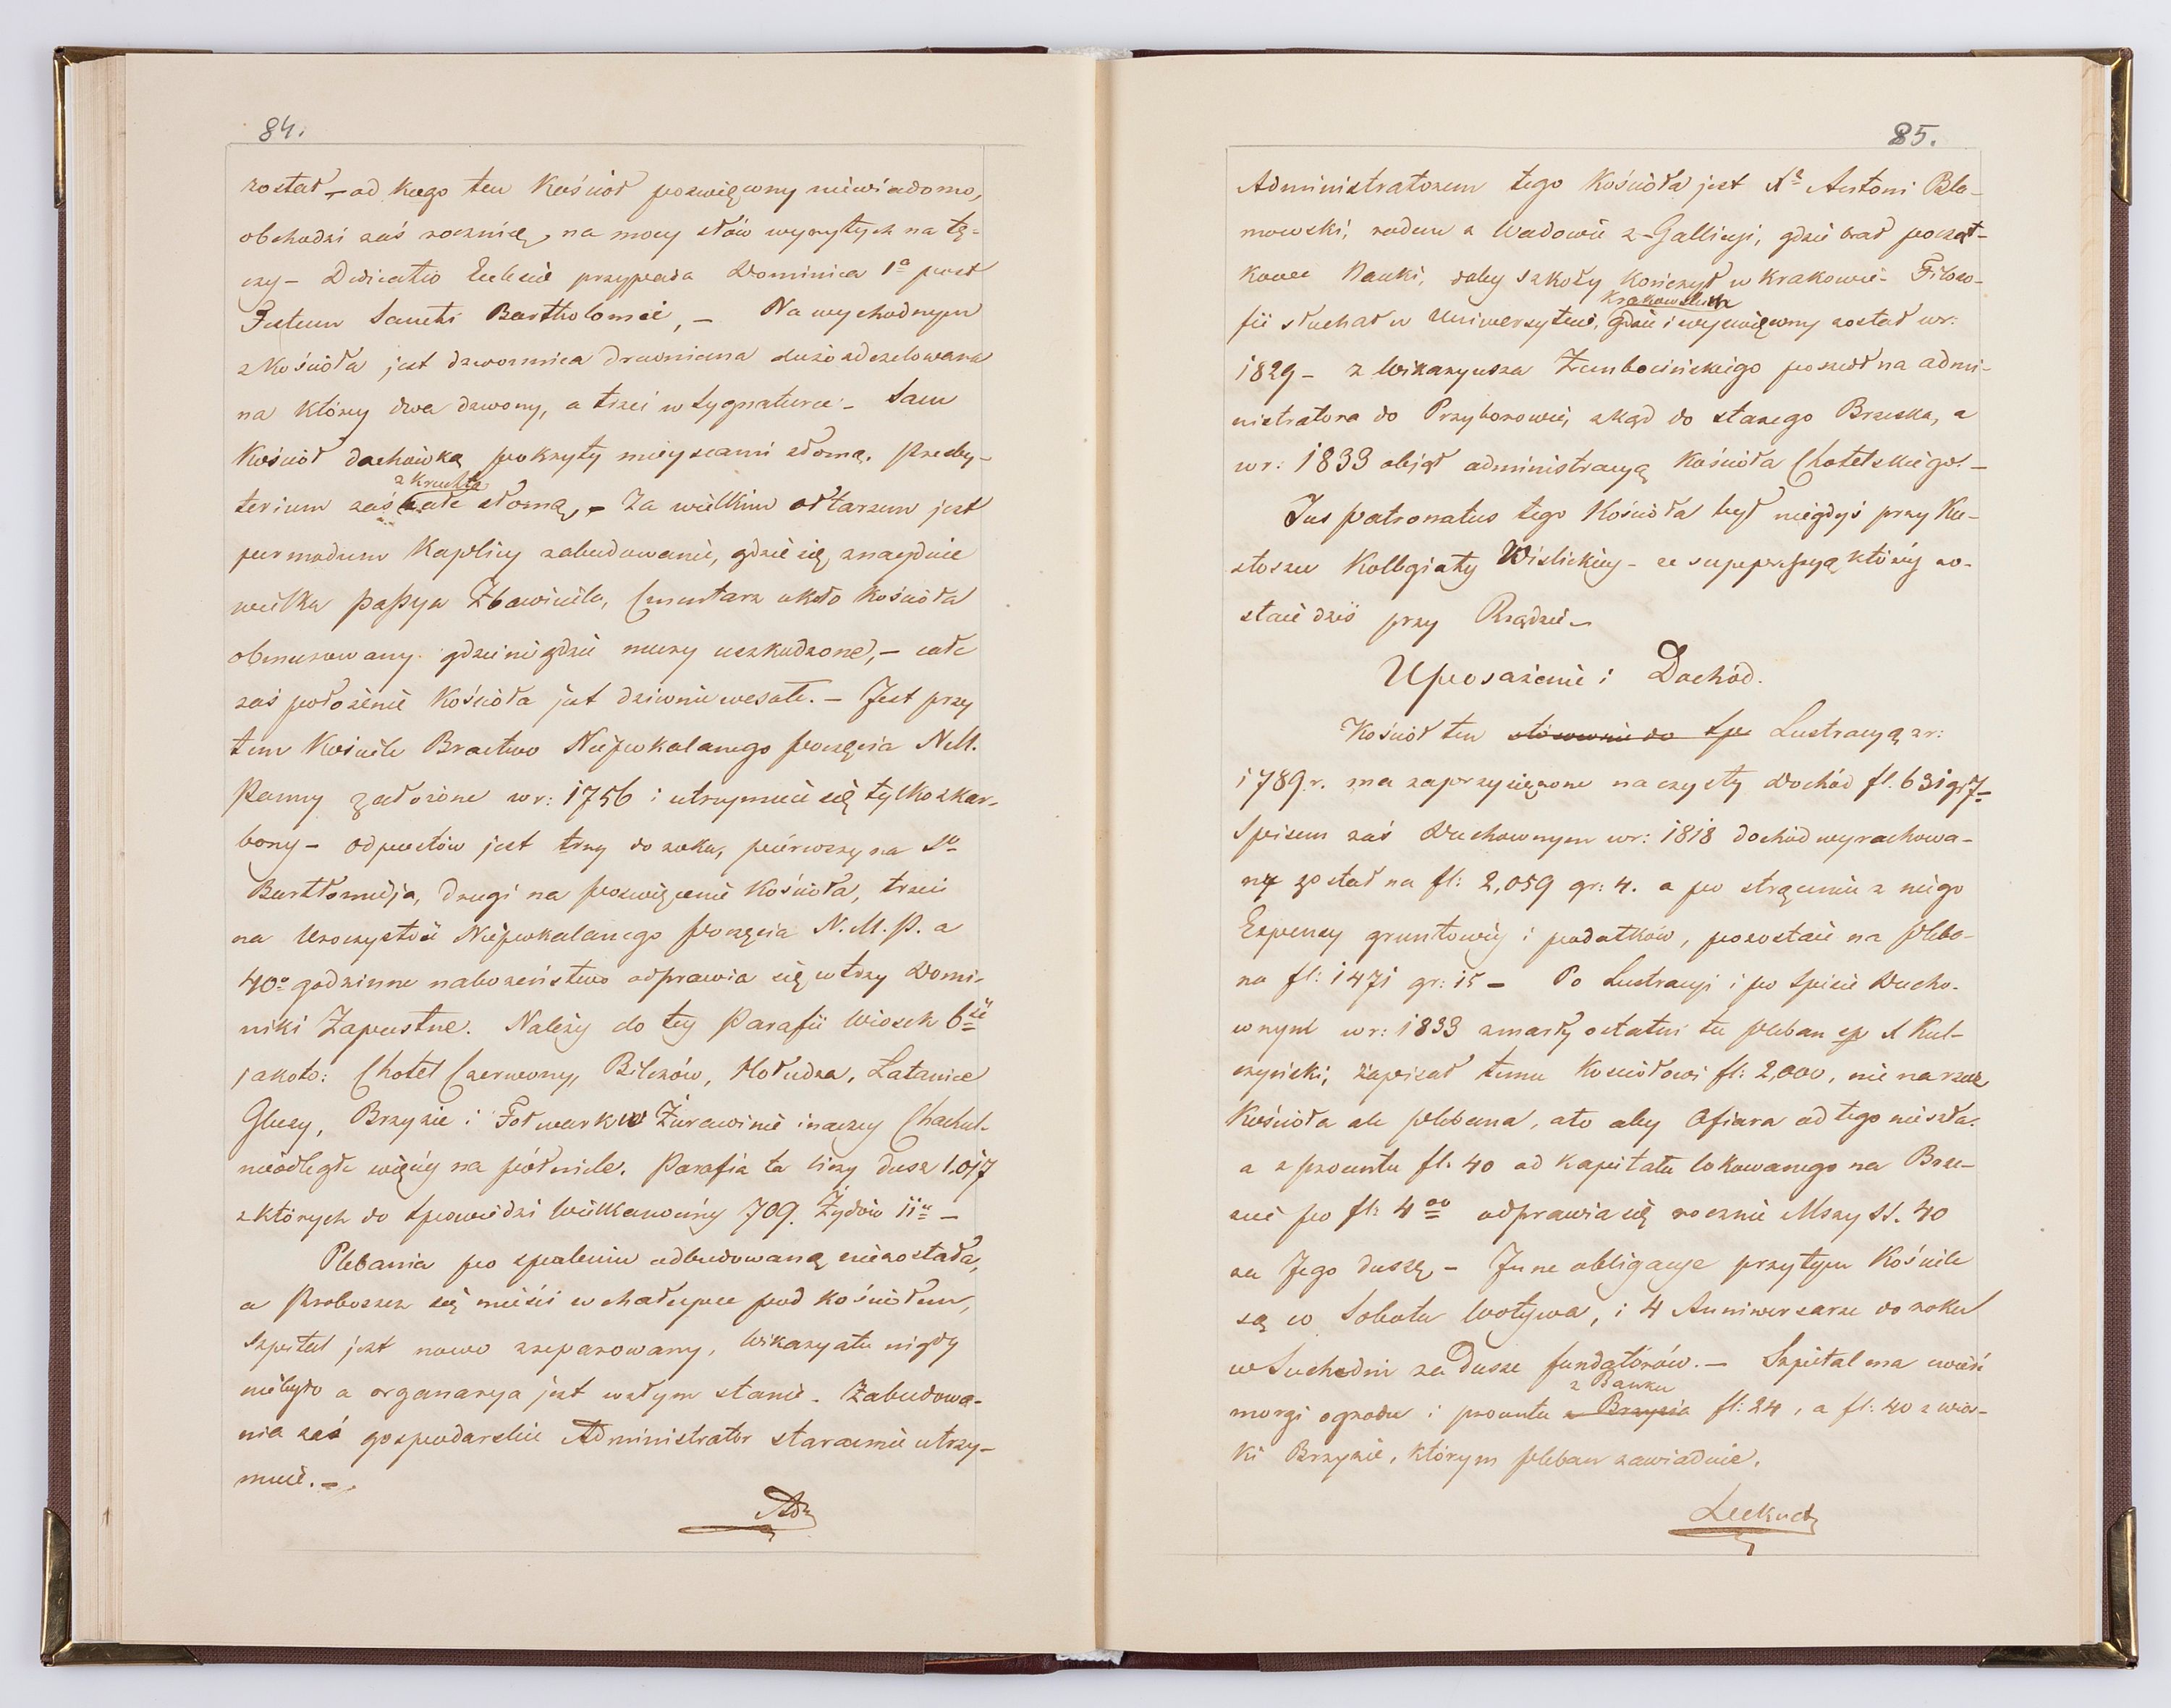 84.
został – od kogo ten Kościoł poswięcony niewiadomo,
obchodzi zaś rocznicę, na mocy słów wyrytych na tę-
czy – Dedicatio Eclesie przypada Dominica 1ª post
Festum Sancti Bartholomei, – Na wychodnym
z Kościoła jest dzwonnica drewniana dużo zdezelowana
na który dwa dzwony, a trzeci w Sygnaturce. – Sam
Kościoł dachówką pokryty mieyscami słomą. Prezby-
z Kruchtą
terium zaś całe słomą, – Za wielkim ołtarzem jest
per modum Kaplicy zabudowanie, gdzie się znayduie
wielka Passya Zbawiciela, Cmentarz około Kościoła
obmurowany gdzieniegdzie mury uszkodzone, – całe
zaś położenie Kościoła jest dziwnie wesołe. – Jest przy
tem Kościele Bractwo Niepokalanego poczęcia N.M.
Panny założone w r: 1756 i utrzymuie się tylko z kar-
bony – Odpustów jest trzy do roku, pierwszy na Sº
Bartłomieja, drugi na poswięcenie Kościoła, trzeci
na Uroczystość Niepokalanego poczęcia N.M.P. a
40º godzinne nabożeństwo odprawia się w trzy Domi-
niki Zapustne. Należy do tey Parafii Wiosek 6ść
jakoto: Chotel Czerwony, Bilczów, Hołudza, Łatanice
Gluzy, Brzezie i Folwark w Żurawinie inaczey Chachul-
nieodległe więcey na pół mile. Parafia ta liczy dusz 1.017
z których do Spowiedzi Wielkanocnéy 709. Żydów 11u –
Plebania po spaleniu odbudowaną niezostała,
a Proboszcz się mieści w chałupce pod kościołem,
Szpital jest nowo zreparowany, Wikaryatu nigdy
niebyło a organarya jest w całym stanie. Zabudowa-
nia zaś gospodarskie Administrator starannie utrzy-
muie. –
Adz
85.
Administratorem tego Kościoła jest X. Antoni Bło-
nowski, rodem z Wadowic z Gallicyi, gdzie brał począt-
kowe Nauki, dalej szkoły kończył w Krakowie. Filozo-
Krakowskim
fii słuchał w Uniwersytecie, gdzie i wyswięcony został w r:
1829 – z Wikaryusza Zembocińskiego poszedł na admi-
nistratora do Przyborowic, zkąd do starego Brzeska, a
w r: 1833 objął administracyą Kościoła Chotelskiégo. –
Jus patronatus tego Kościoła był niegdyś przy Ku-
stoszu Kollegiaty Wislickiey – ze suppressyą któréy zo-
staie dziś przy Rządzie –
Uposażenie i Dochód.
Kościoł ten stósownie do Sp. Lustracyą z r:
1789 r. ma zaprzysiężone na czysty Dochód fl. 631 gr 7 –
Spisem zaś Duchownym w r: 1818 dochód wyrachowa-
ny został na fl: 2,059 gr: 4. a po strąceniu z niego
Expensy gruntowéy i podatków, pozostaie na pleba-
na fl: 1471 gr: 15 – Po Lustracyi i po Spisie Ducho-
wnym w r: 1833 zmarły ostatni tu pleban śp X Kul-
czycki, zapisał temu Kościołowi fl: 2,000, nie na rzecz
Kościoła ale plebana, ato aby Ofiara od tego nieszła.
a z procentu fl. 40 od kapitału lokowanego na Brze-
ziu po fl: 4 00 odprawia się rocznie Mszy SS. 40
za Jego duszę, – Inne obligacye przytym Kościele
są w Sobotu Wotywa, i 4 Anniwersarze do roku
w Suchedni za Dusze fundatorów. – Szpital ma ćwierć
z Banku
morgi ogrodu i procentu z Brzezia fl: 24, a fl: 40 z wio-
ki Brzezie, którym pleban zawiaduie.